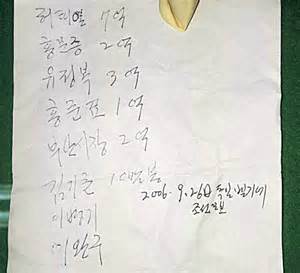 허태열 7억
홍문종 2억
유정복 3억
홍준표 1억
부산시장 2억
김기춘 10만불
2006. 9. 26日 독일 벨기에
조선일보
이병기
이완구